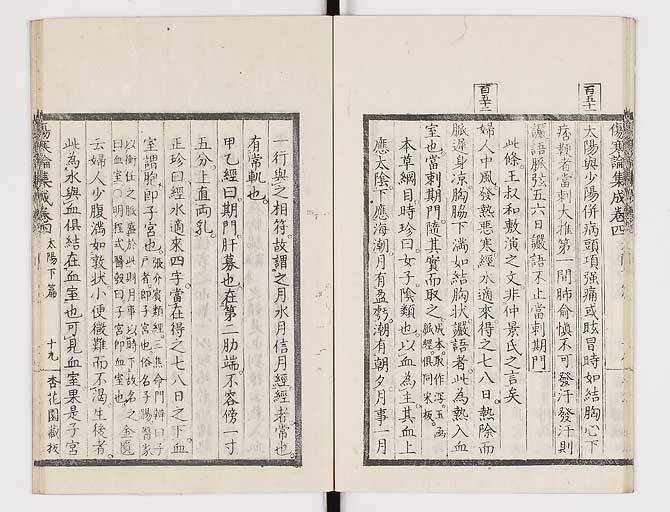 百五十一
太陽與少陽併病頭項强痛或眩冒時如結胸心下
痞鞕者當刺大推第一間肺兪愼不可發汗發汗則
譫語脈弦五六日譫語不止當刺期門
此條王叔和敷演之文非仲景氏之言矣
百五十二
婦人中風發熱惡寒經水適來得之七八日熱除而
脈遲身凉胸脇下滿如結胸狀譫語者此為熱入血
室也當刺期門隨其實而取之
本草綱目時珍曰女子陰類也以血為主其血上
應太陰下應海潮月有盈虧潮有朝夕月事一月
傷寒論集成卷四
一行與之相符故謂之月水月信月經經者常也
有常軌也
甲乙經曰期門肝募也在第二肋端不容傍一寸
五分上直兩乳
正珍曰經水適來四字當在得之七八日之下血
室謂胞即子宮也
云婦人少腹滿如敦狀小便微難而不渴生後者
此為水與血俱結在血室也可見血室果是子宮
傷寒論集成卷四 太陽下篇 十九 杏花園藏板